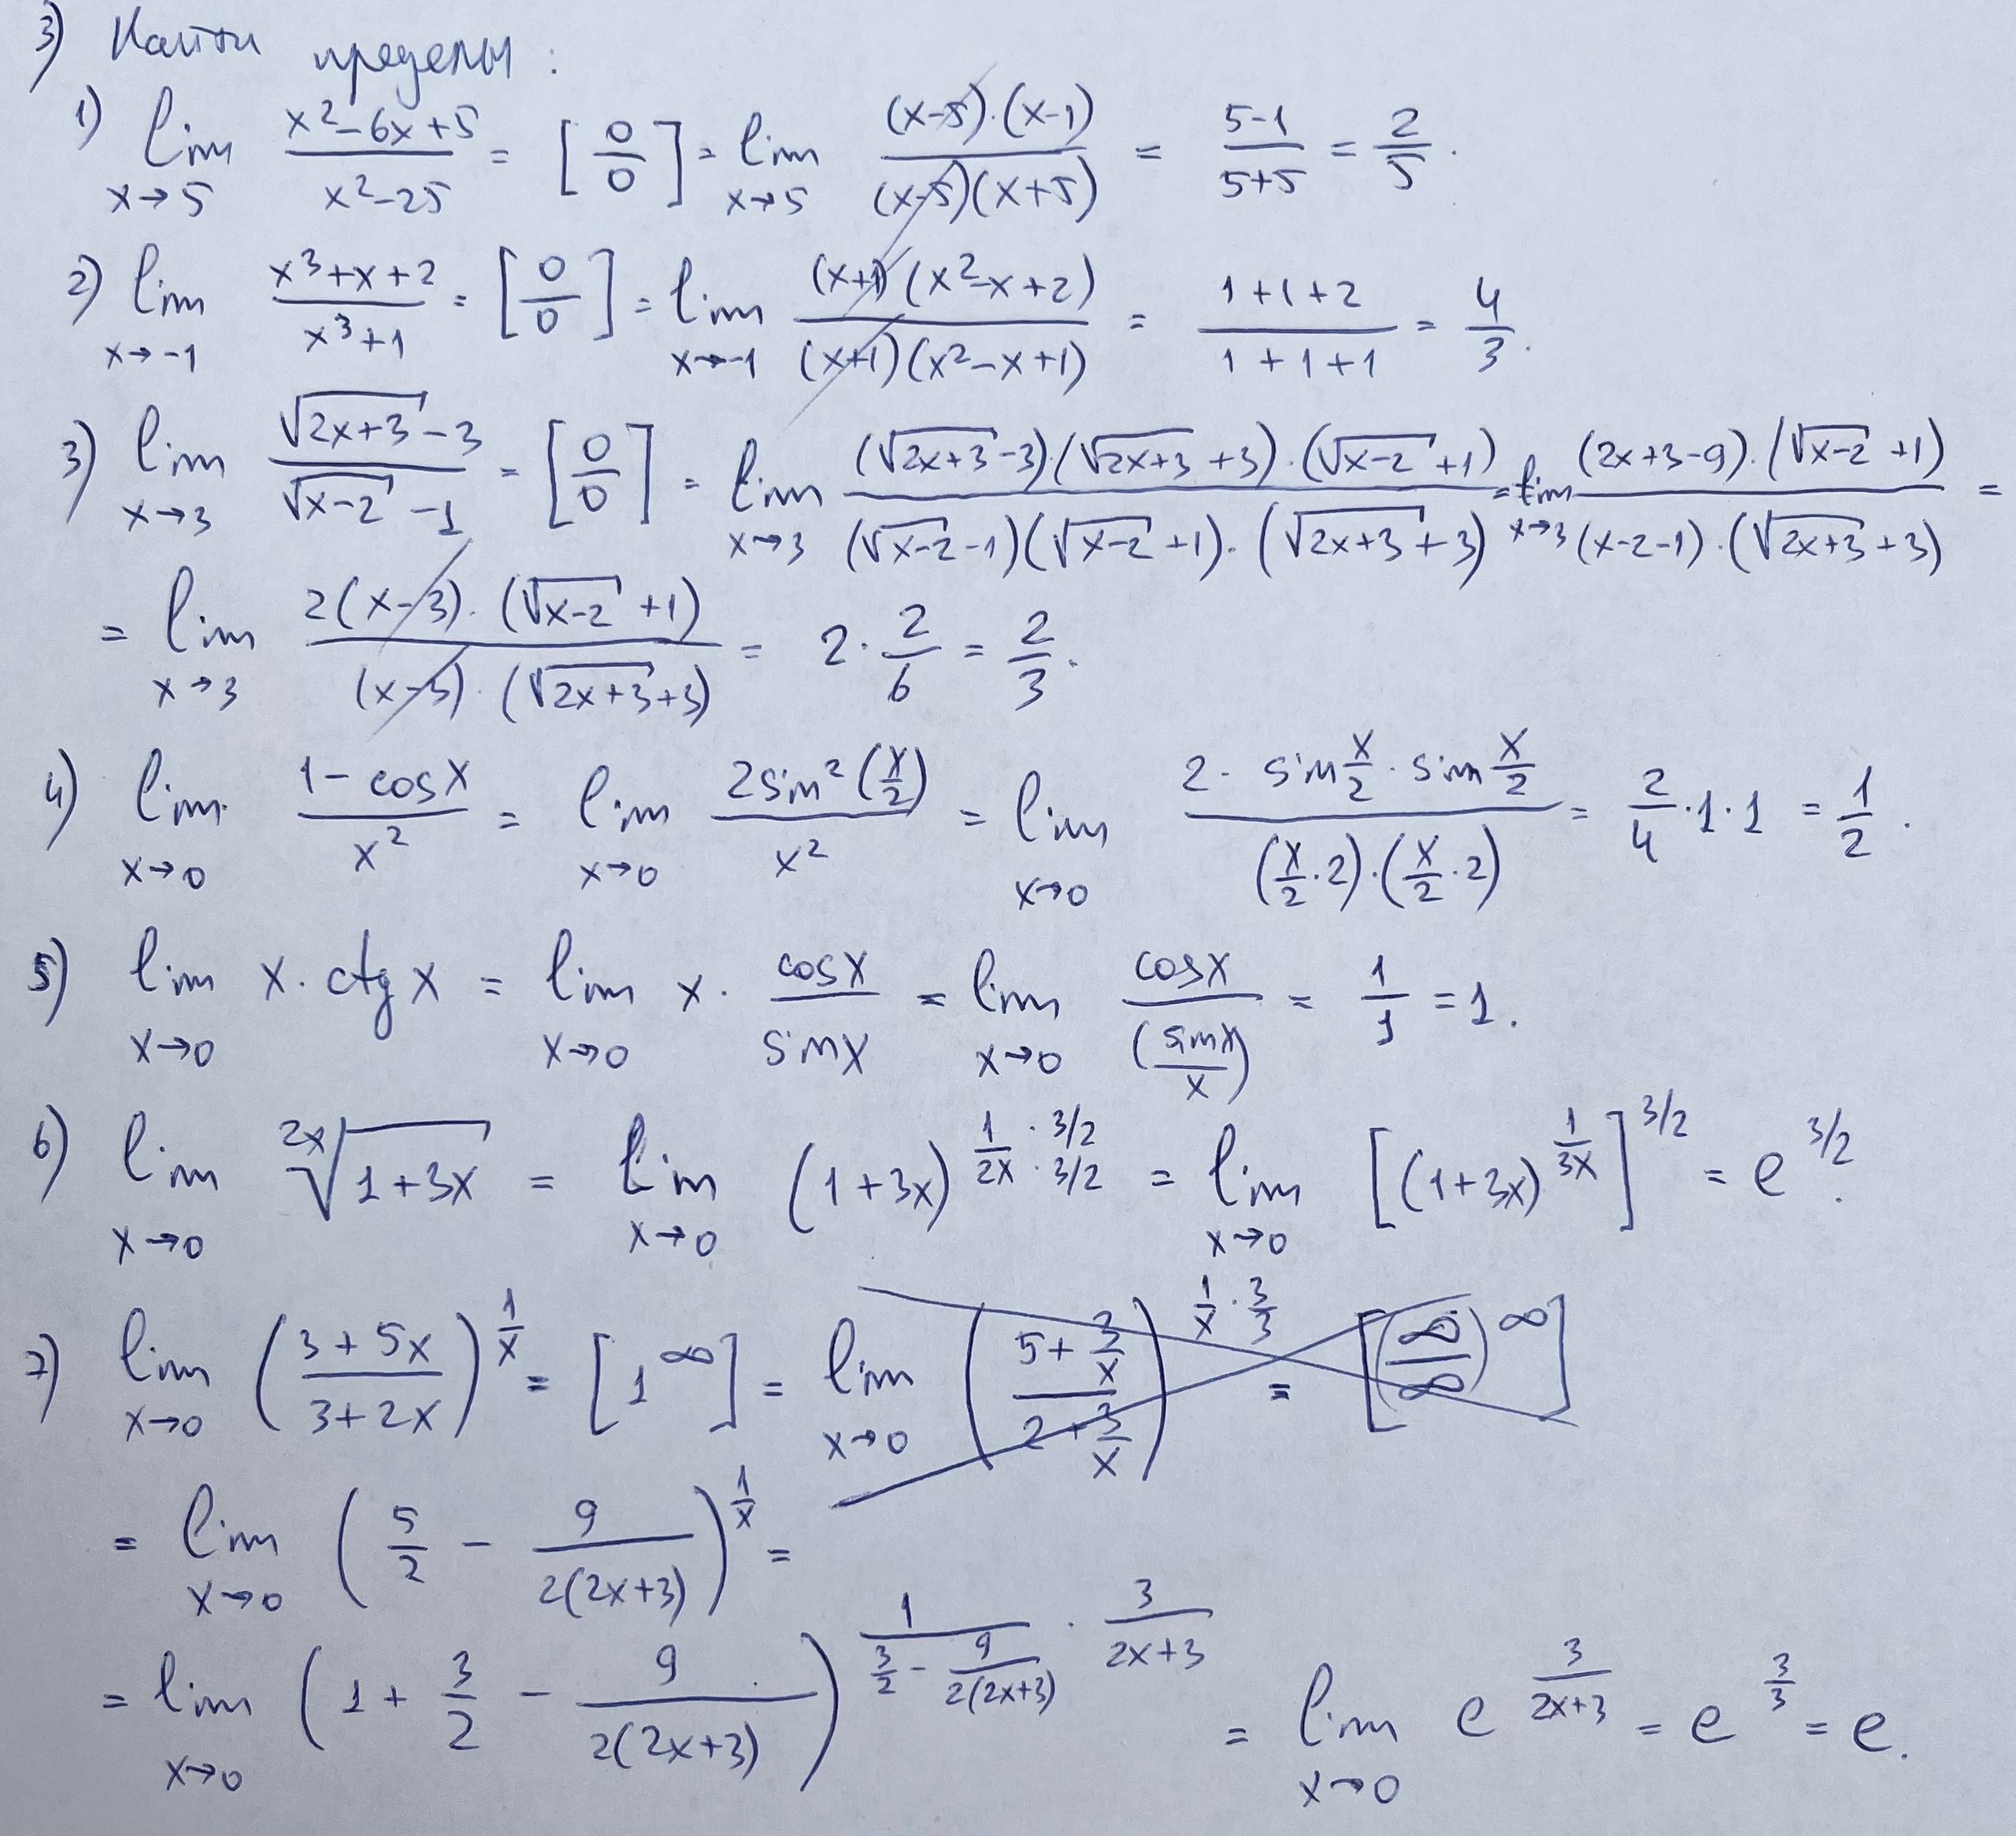 3) Найти пределы:
1) lim x→5 (x²-6x+5)/(x²-25) = [0/0] = lim x→5 ((x-5)·(x-1))/((x-5)(x+5)) = (5-1)/(5+5) = 2/5.
2) lim x→-1 (x³+x+2)/(x³+1) = [0/0] = lim x→-1 ((x+1)(x²-x+2))/((x+1)(x²-x+1)) = (1+1+2)/(1+1+1) = 4/3.
3) lim x→3 (√(2x+3)-3)/(√(x-2)-1) = [0/0] = lim x→3 ((√(2x+3)-3)·(√(2x+3)+3)·(√(x-2)+1))/((√(x-2)-1)(√(x-2)+1)·(√(2x+3)+3)) = lim x→3 ((2x+3-9)·(√(x-2)+1))/((x-2-1)·(√(2x+3)+3)) =
= lim x→3 (2(x-3)·(√(x-2)+1))/((x-3)·(√(2x+3)+3)) = 2·2/6 = 2/3.
4) lim x→0 (1-cosx)/x² = lim x→0 (2sin²(x/2))/x² = lim x→0 (2·sin x/2·sin x/2)/((x/2·2)·(x/2·2)) = 2/4·1·1 = 1/2.
5) lim x→0 x·ctgx = lim x→0 x·cosx/sinx = lim x→0 cosx/(sinx/x) = 1/1 = 1.
6) lim x→0 ^(2x)√(1+3x) = lim x→0 (1+3x)^(1/2x · (3/2)/(3/2)) = lim x→0 [(1+3x)^(1/3x)]^(3/2) = e^(3/2).
7) lim x→0 ((3+5x)/(3+2x))^(1/x) = [1^∞] = lim x→0 ((5+3/x)/(2+3/x))^(1/x·3/3) = [(∞/∞)^∞]
= lim x→0 (5/2 - 9/(2(2x+3)))^(1/x) =
= lim x→0 (1+3/2 - 9/(2(2x+3)))^(1/(3/2 - 9/(2(2x+3))) · 3/(2x+3)) = lim x→0 e^(3/(2x+3)) = e^(3/3) = e.